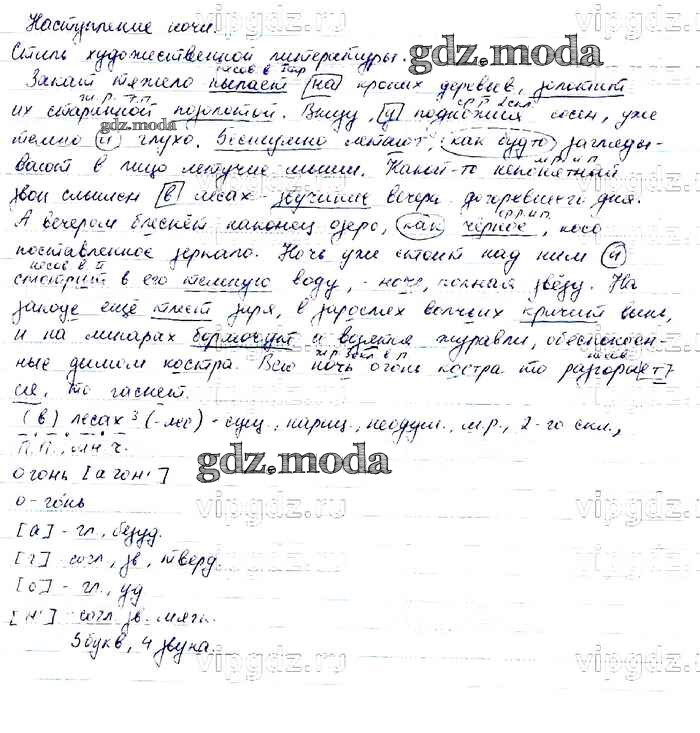 Наступление ночи.
Стиль художественной литературы.
Закат тяжело пылает на кронах деревьев, золотит
их старинной позолотой. Внизу, у подножия сосен, уже
темно и глухо. Бесшумно летают, как будто загляды-
вают в лицо летучие мыши. Какой-то непонятный
звон слышен в лесах - звучание вечера, догоревшего дня.
А вечером блеснёт наконец озеро, как чёрное, косо
поставленное зеркало. Ночь уже стоит над ним и
смотрит в его темную воду, - ночь, полная звёзд. На
западе ещё тлеет заря, в зарослях волчьих кричит выпь,
и на мшарах бормочут и возятся журавли, обеспокоен-
ные дымом костра. Всю ночь огонь костра то разгорает-
ся, то гаснет.
(В) лесах³ (- лес) - сущ., нариц., неодуш., м.р., 2-го скл.,
П.п., мн.ч.
огонь [агон']
о-гонь
[а] - гл., безуд.
[г] - согл., зв., тверд.
[о] - гл., уд
[н'] - согл. зв. мягк.
5 букв, 4 звука.
gdz.moda
gdz.moda
gdz.moda
vipgdz.ru